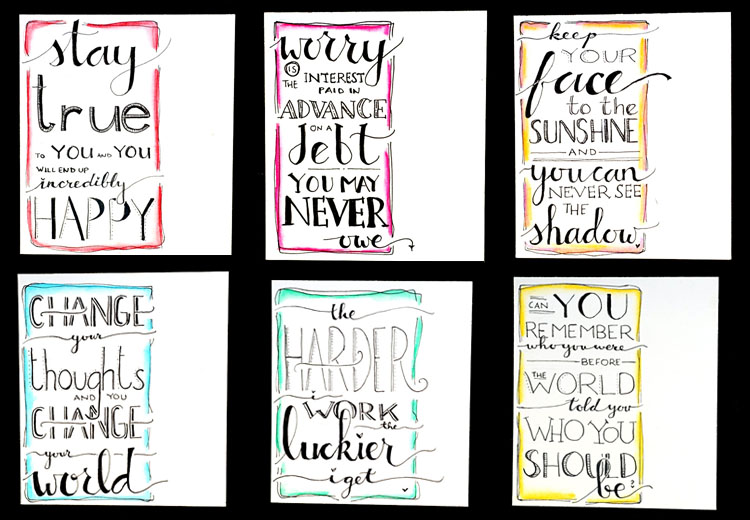 stay
true
TO YOU AND YOU
WILL END UP
incredibly
HAPPY
worry
IS
THE INTEREST
PAID IN
ADVANCE
ON A
debt
YOU MAY
NEVER
owe
keep
YOUR
face
to the
SUNSHINE
AND
you can
NEVER SEE
THE
shadow
CHANGE
your
thoughts
AND YOU
CHANGE
your
world
the
HARDER
i WORK
the
luckier
i get
CAN YOU
REMEMBER
who you were
BEFORE
THE WORLD
told you
WHO YOU
SHOULD
be?